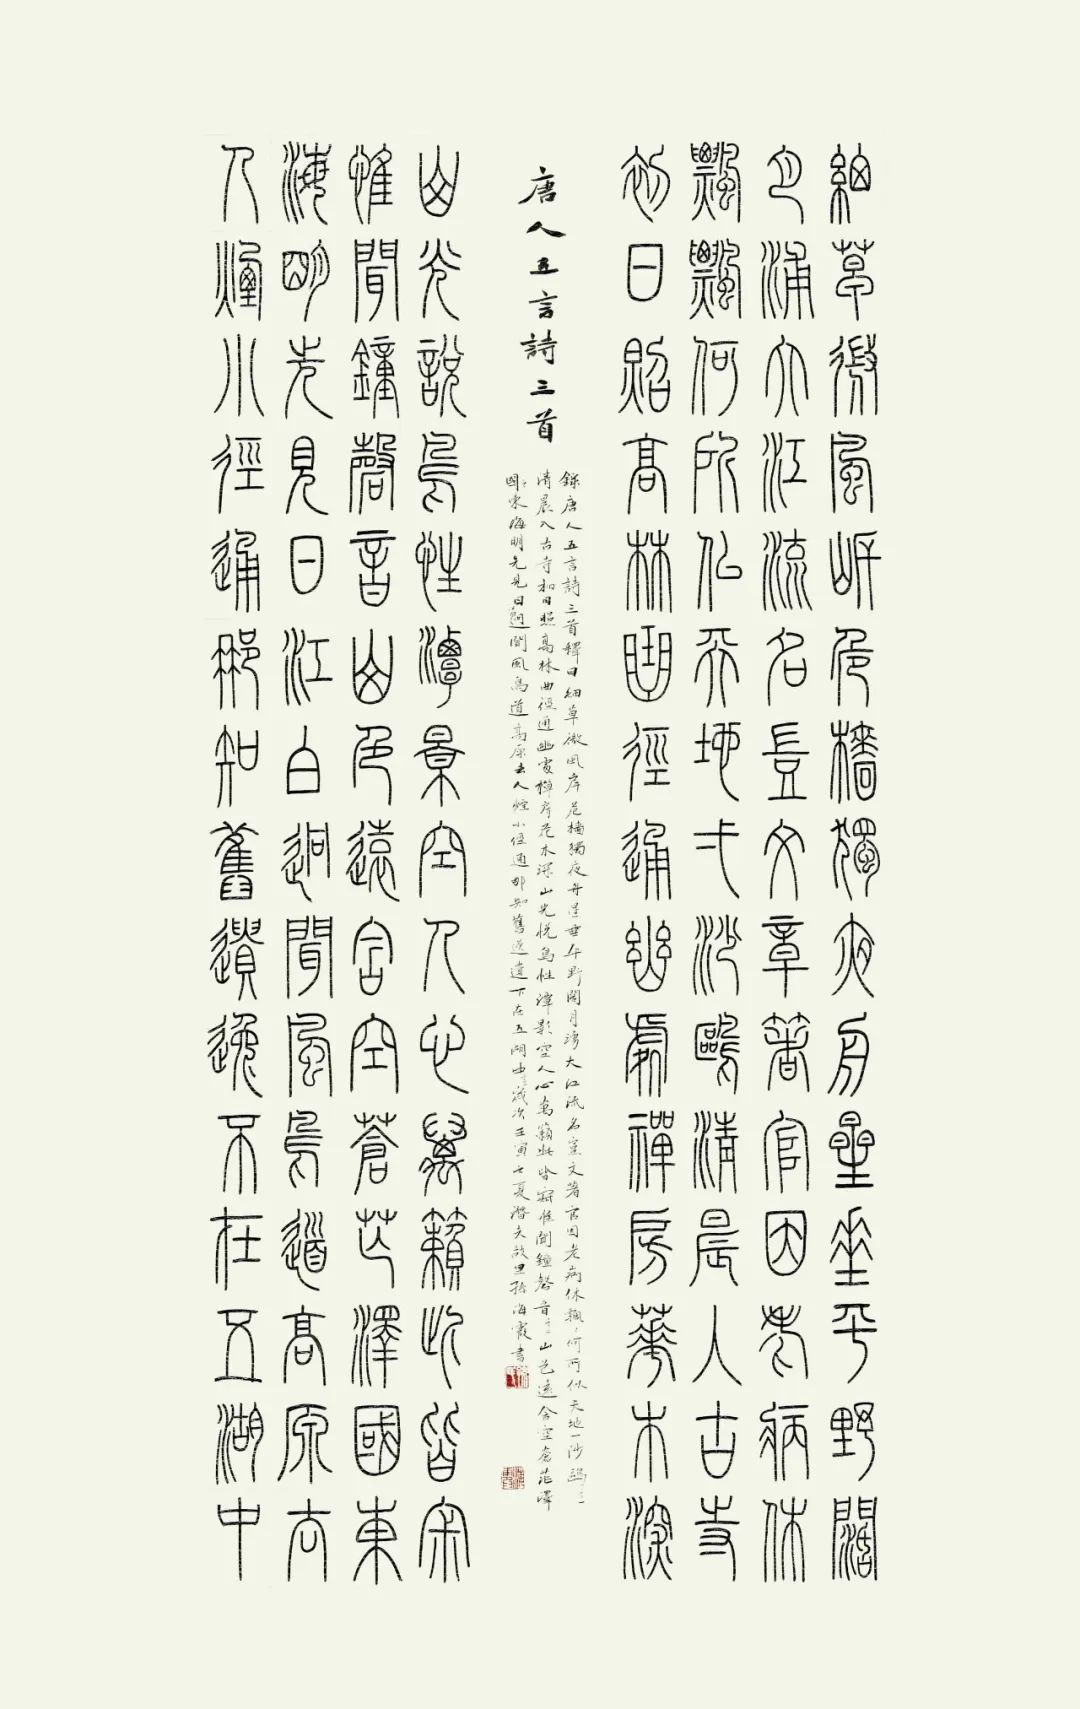 細草微風岸危檣獨夜舟星垂平野闊
月涌大江流名豈文章著官因老病休
飄飄何所似天地弌沙鷗清晨入古寺
初日照高林曲徑通幽處禪房華木深
唐人五言詩三首
錄唐人五言詩三首釋曰細草微風岸危檣獨夜舟星垂平野闊月湧大江流名豈文著官因老病休飄〻何所似天地一沙鷗
清晨入古寺初日照高林曲徑通幽處禪房花木深山光悅鳥性潭影空人心萬籟此皆寂惟聞鐘磬音山色遠含空蒼茫澤
國東海明先見日迥聞風鳥道高原去人煙小徑通那知舊逸遺不在五湖中歲次壬寅之夏潛夫孫海霞書
山光說鳥性潭景空人心萬籟此皆寂
惟聞鐘磬音山色遠含空蒼茫澤國東
海明先見日江白迥聞風鳥道高原去
人煙小徑通那知舊遺逸不在五湖中